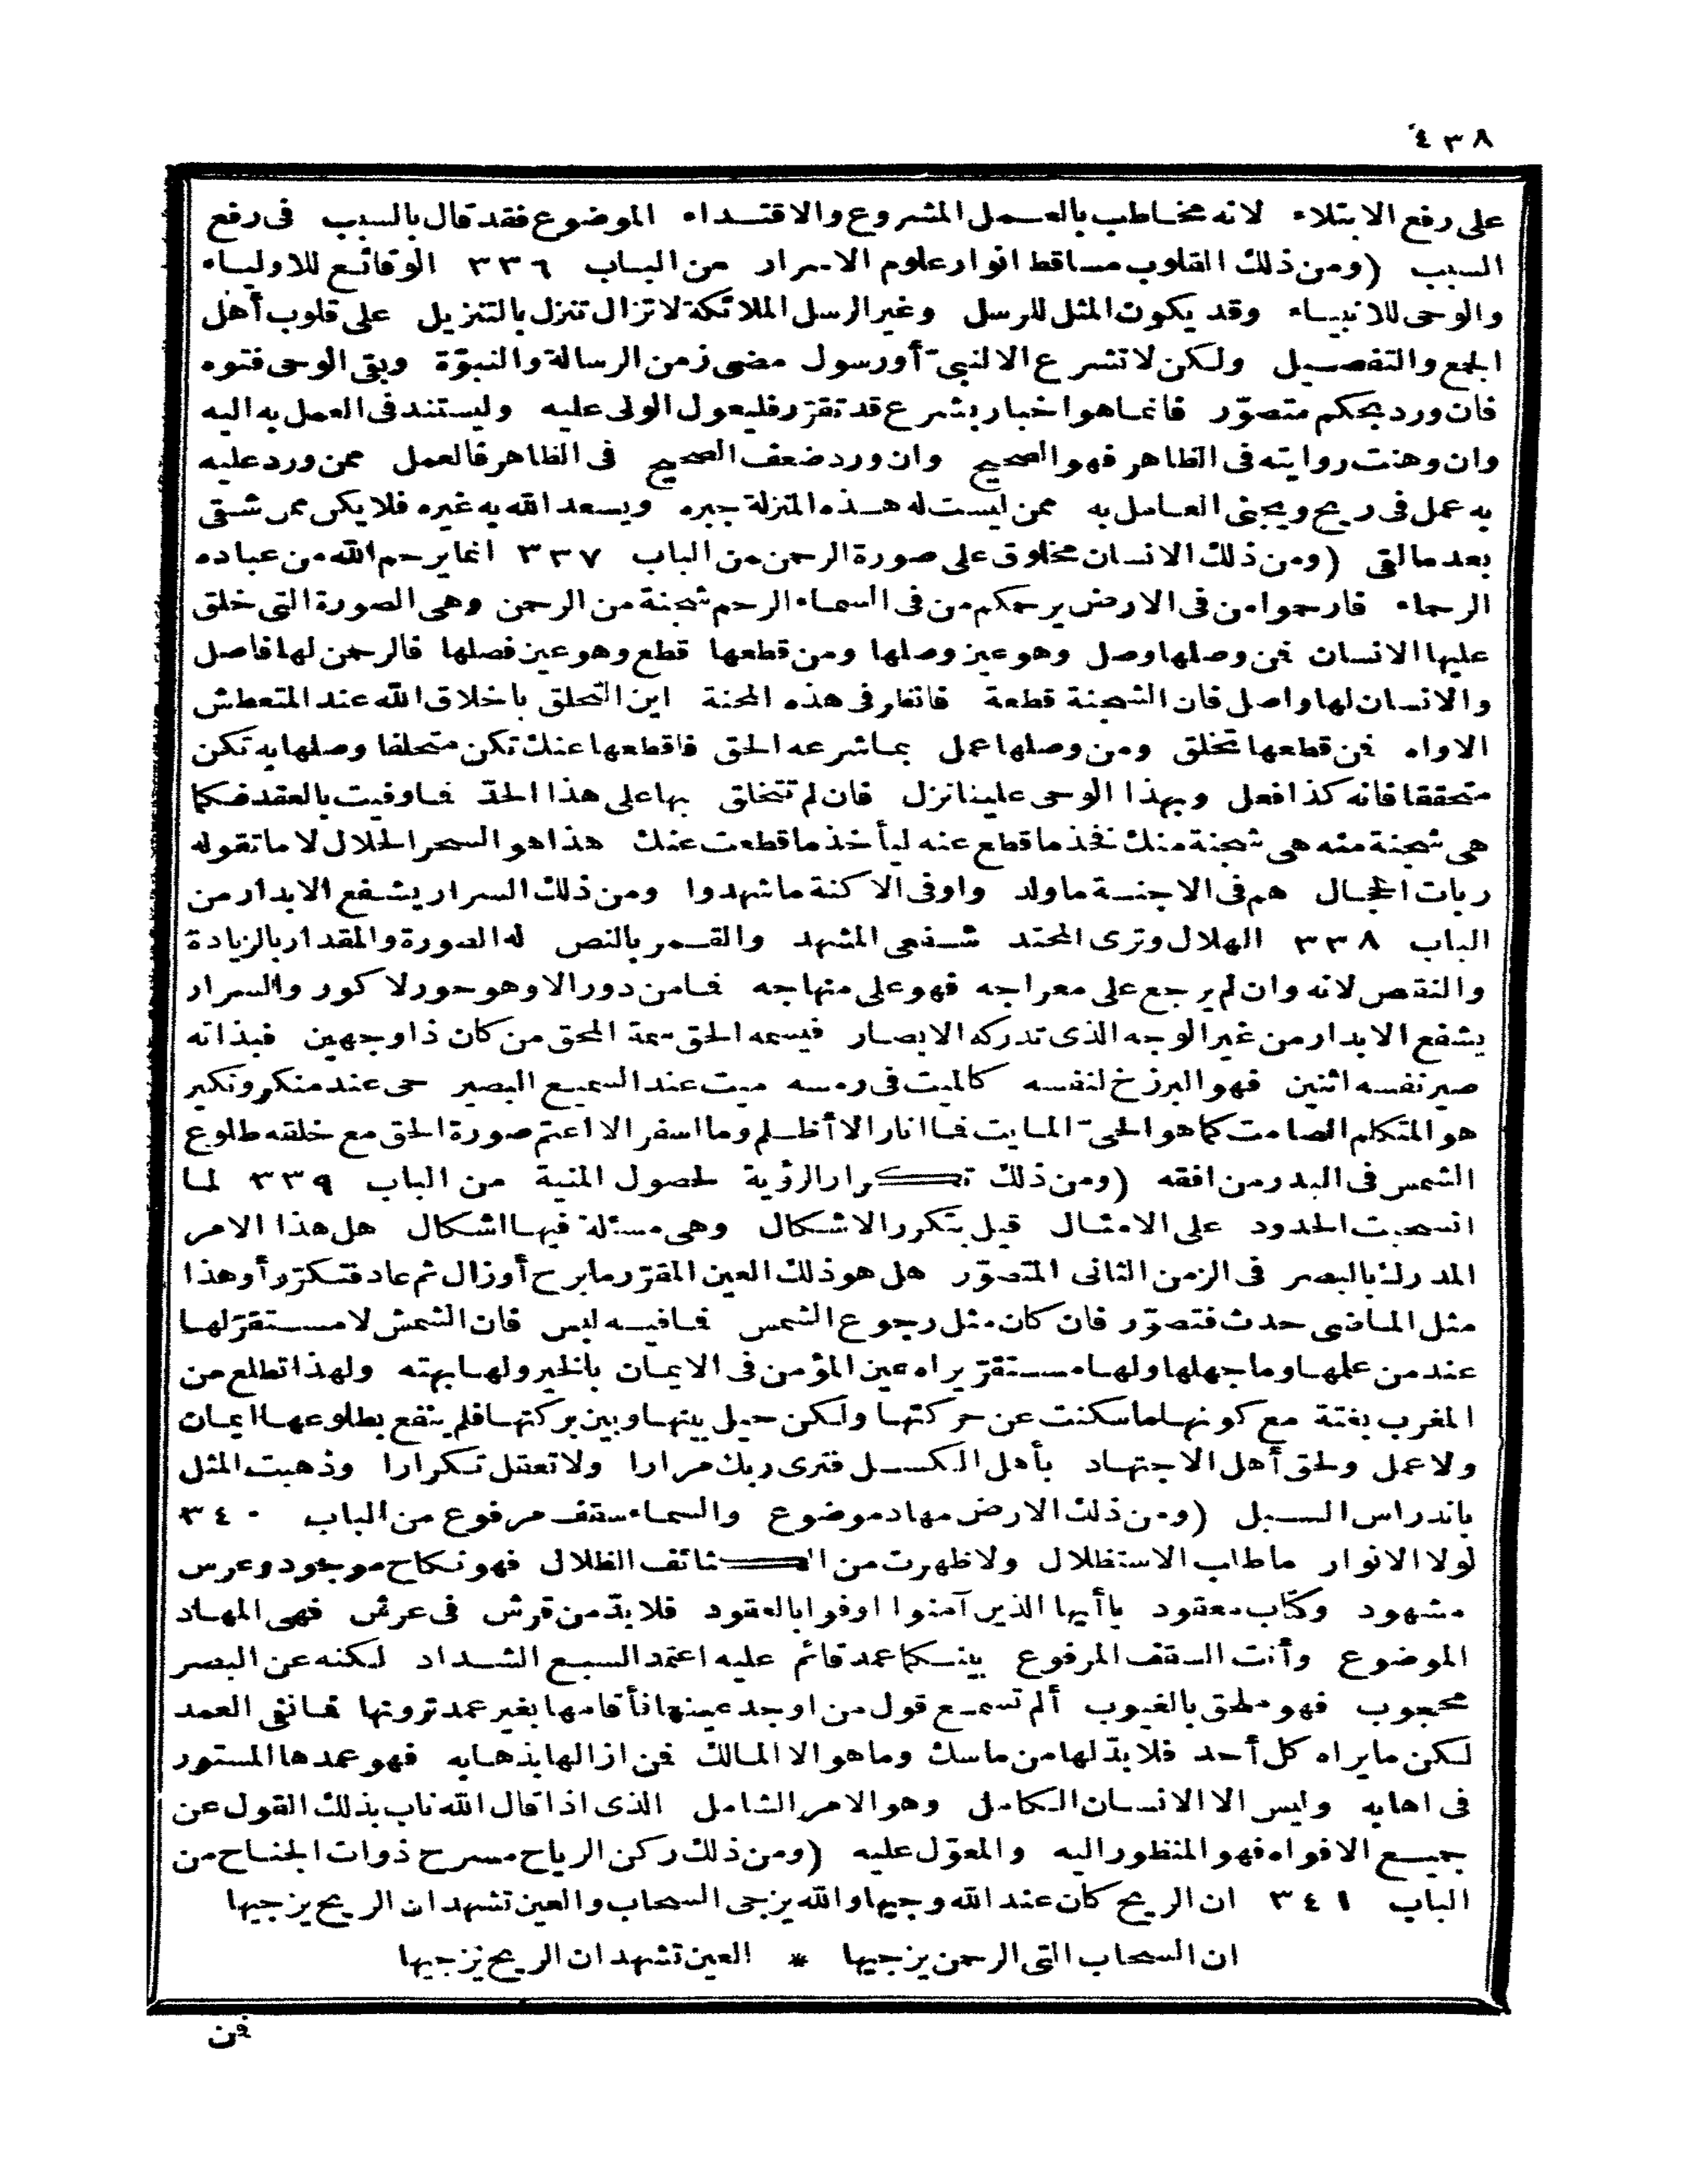 ٤٣٨
على رفع الابتلاء لانه مخاطب بالعمل المشروع والاقتداء الموضوع فقد قال بالسبب فى رفع
السبب (ومن ذلك القلوب مساقط انوار علوم الاسرار من الباب ٣٣٦ الوقائع للاولياء
والوحى للانبياء وقد يكون المثل للرسل وغير الرسل الملائكة لا تزال تنزل بالتنزيل على قلوب أهل
الجمع والتفصيل ولكن لا تشرع الا لنبىّ أو رسول مضى زمن الرسالة والنبوّة وبقى الوحى فتوه
فان ورد بحكم متصوّر فانما هو اخبار بشرع قد تقرّر فليعول الولى عليه وليستند فى العمل به اليه
وان وهنت روايته فى الظاهر فهو الصحيح وان ورد ضعف الصحيح فى الظاهر فالعمل ممن ورد عليه
به عمل فى ريح ويجنى العامل به ممن ليست له هذه المنزلة جبره ويسعد الله به غيره فلا يكن ممن شقى
بعد ما لقى (ومن ذلك الانسان مخلوق على صورة الرحمن من الباب ٣٣٧ انما يرحم الله من عباده
الرحماء فارحموا من فى الارض يرحمكم من فى السماء الرحم شجنة من الرحمن وهى الصورة التى خلق
عليها الانسان فمن وصلها وصل وهو عين وصلها ومن قطعها قطع وهو عين فصلها فالرحمن لها فاصل
والانسان لها واصل فان الشجنة قطعة فانظر فى هذه المحنة اين التخلق باخلاق الله عند المتعطش
الاواه فمن قطعها تخلق ومن وصلها عمل بما شرعه الحق فاقطعها عنك تكن متخلقا وصلها به تكن
متحققا فانه كذا فعل وبهذا الوحى علينا نزل فان لم تتخلق بها على هذا الحدّ فما وفيت بالعقد فكما
هى شجنة منه هى شجنة منك فخذ ما قطع عنه ليأخذ ما قطعت عنك هذا هو السحر الحلال لا ما تقوله
ربات الحجال هم فى الاجنة ما ولد واوفى الاكنة ما شهدوا ومن ذلك السرار يشفع الابدار من
الباب ٣٣٨ الهلال وترى المحتد شفعى المشهد والقمر بالنص له الصورة والمقدار بالزيادة
والنقص لانه وان لم يرجع على معراجه فهو على منهاجه فما من دور الا وهو حور لا كور والسرار
يشفع الابدار من غير الوجه الذى تدركه الابصار فيسمه الحق سمة المحق من كان ذا وجهين فبذاته
صير نفسه اثنين فهو البرزخ لنفسه كالميت فى رمسه ميت عند السميع البصير حى عند منكر ونكير
هو المتكلم الصامت كما هو الحىّ المايت فما انار الا أظلم وما اسفر الا اعتم صورة الحق مع خلقه طلوع
الشمس فى البدر من افقه (ومن ذلك تكرار الرؤية لحصول المنية من الباب ٣٣٩ لما
انسحبت الحدود على الامثال قيل بتكرر الاشكال وهى مسئلة فيها اشكال هل هذا الامر
المدرك بالبصر فى الزمن الثانى المتصوّر هل هو ذلك العين المقرّر ما برح أو زال ثم عاد فتكرّر أو هذا
مثل الماضى حدث فتصوّر فان كان مثل رجوع الشمس فما فيه لبس فان الشمس لا مستقرّ لها
عند من علمها وما جهلها ولها مستقرّ يراه عين المؤمن فى الايمان بالخير ولها بهته ولهذا تطلع من
المغرب بغتة مع كونها ما سكنت عن حركتها ولكن حيل بينها وبين بركتها فلم ينفع بطلوعها ايمان
ولا عمل ولحق أهل الاجتهاد بأهل الكسل فترى ربك مرارا ولا تعقل تكرارا وذهبت المثل
باندراس السبل (ومن ذلك الارض مهاد موضوع والسماء سقف مرفوع من الباب ٣٤٠
لولا الانوار ما طاب الاستظلال ولا ظهرت من الكثائف الظلال فهو نكاح موجود وعرس
مشهود وكتاب معقود يا أيها الذين آمنوا اوفوا بالعقود فلا بدّ من فرش فى عرش فهى المهاد
الموضوع وأنت السقف المرفوع بينكما عمد قائم عليه اعتمد السبع الشداد لكنه عن البصر
محجوب فهو ملحق بالغيوب ألم تسمع قول من اوجد عينها فأقامها بغير عمد ترونها فما نفى العمد
لكن ما يراه كل أحد فلا بدّ لها من ماسك وما هو الا المالك فمن ازالها بذهابه فهو عمدها المستور
فى اهابه وليس الا الانسان الكامل وهو الامر الشامل الذى اذا قال الله ناب بذلك القول عن
جميع الافواه فهو المنظور اليه والمعوّل عليه (ومن ذلك ركن الرياح مسرح ذوات الجناح من
الباب ٣٤١ ان الريح كان عند الله وجيها والله يزجى السحاب والعين تشهد ان الريح يزجيها
ان السحاب التى الرحمن يزجيها * العين تشهد ان الريح يزجيها
فمن